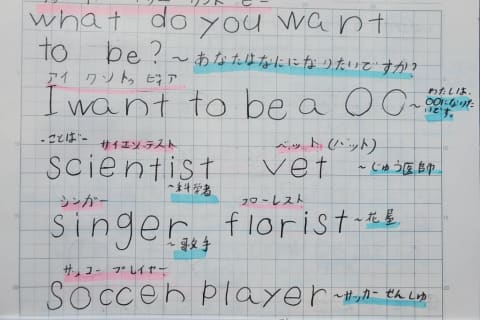 what do you want
to be? ~あなたはなにになりたいですか?
アイ ウォントゥ ビィア
I want to be a 〇〇 ~わたしは、〇〇になりたいです。
-ことば-
サイエンテスト ベット (バット)
scientist vet ~じゅう医師
~科学者
シンガー フローレスト
singer florist ~花屋
~歌手
サッカー プレイヤー
soccer player ~サッカーせんしゅ